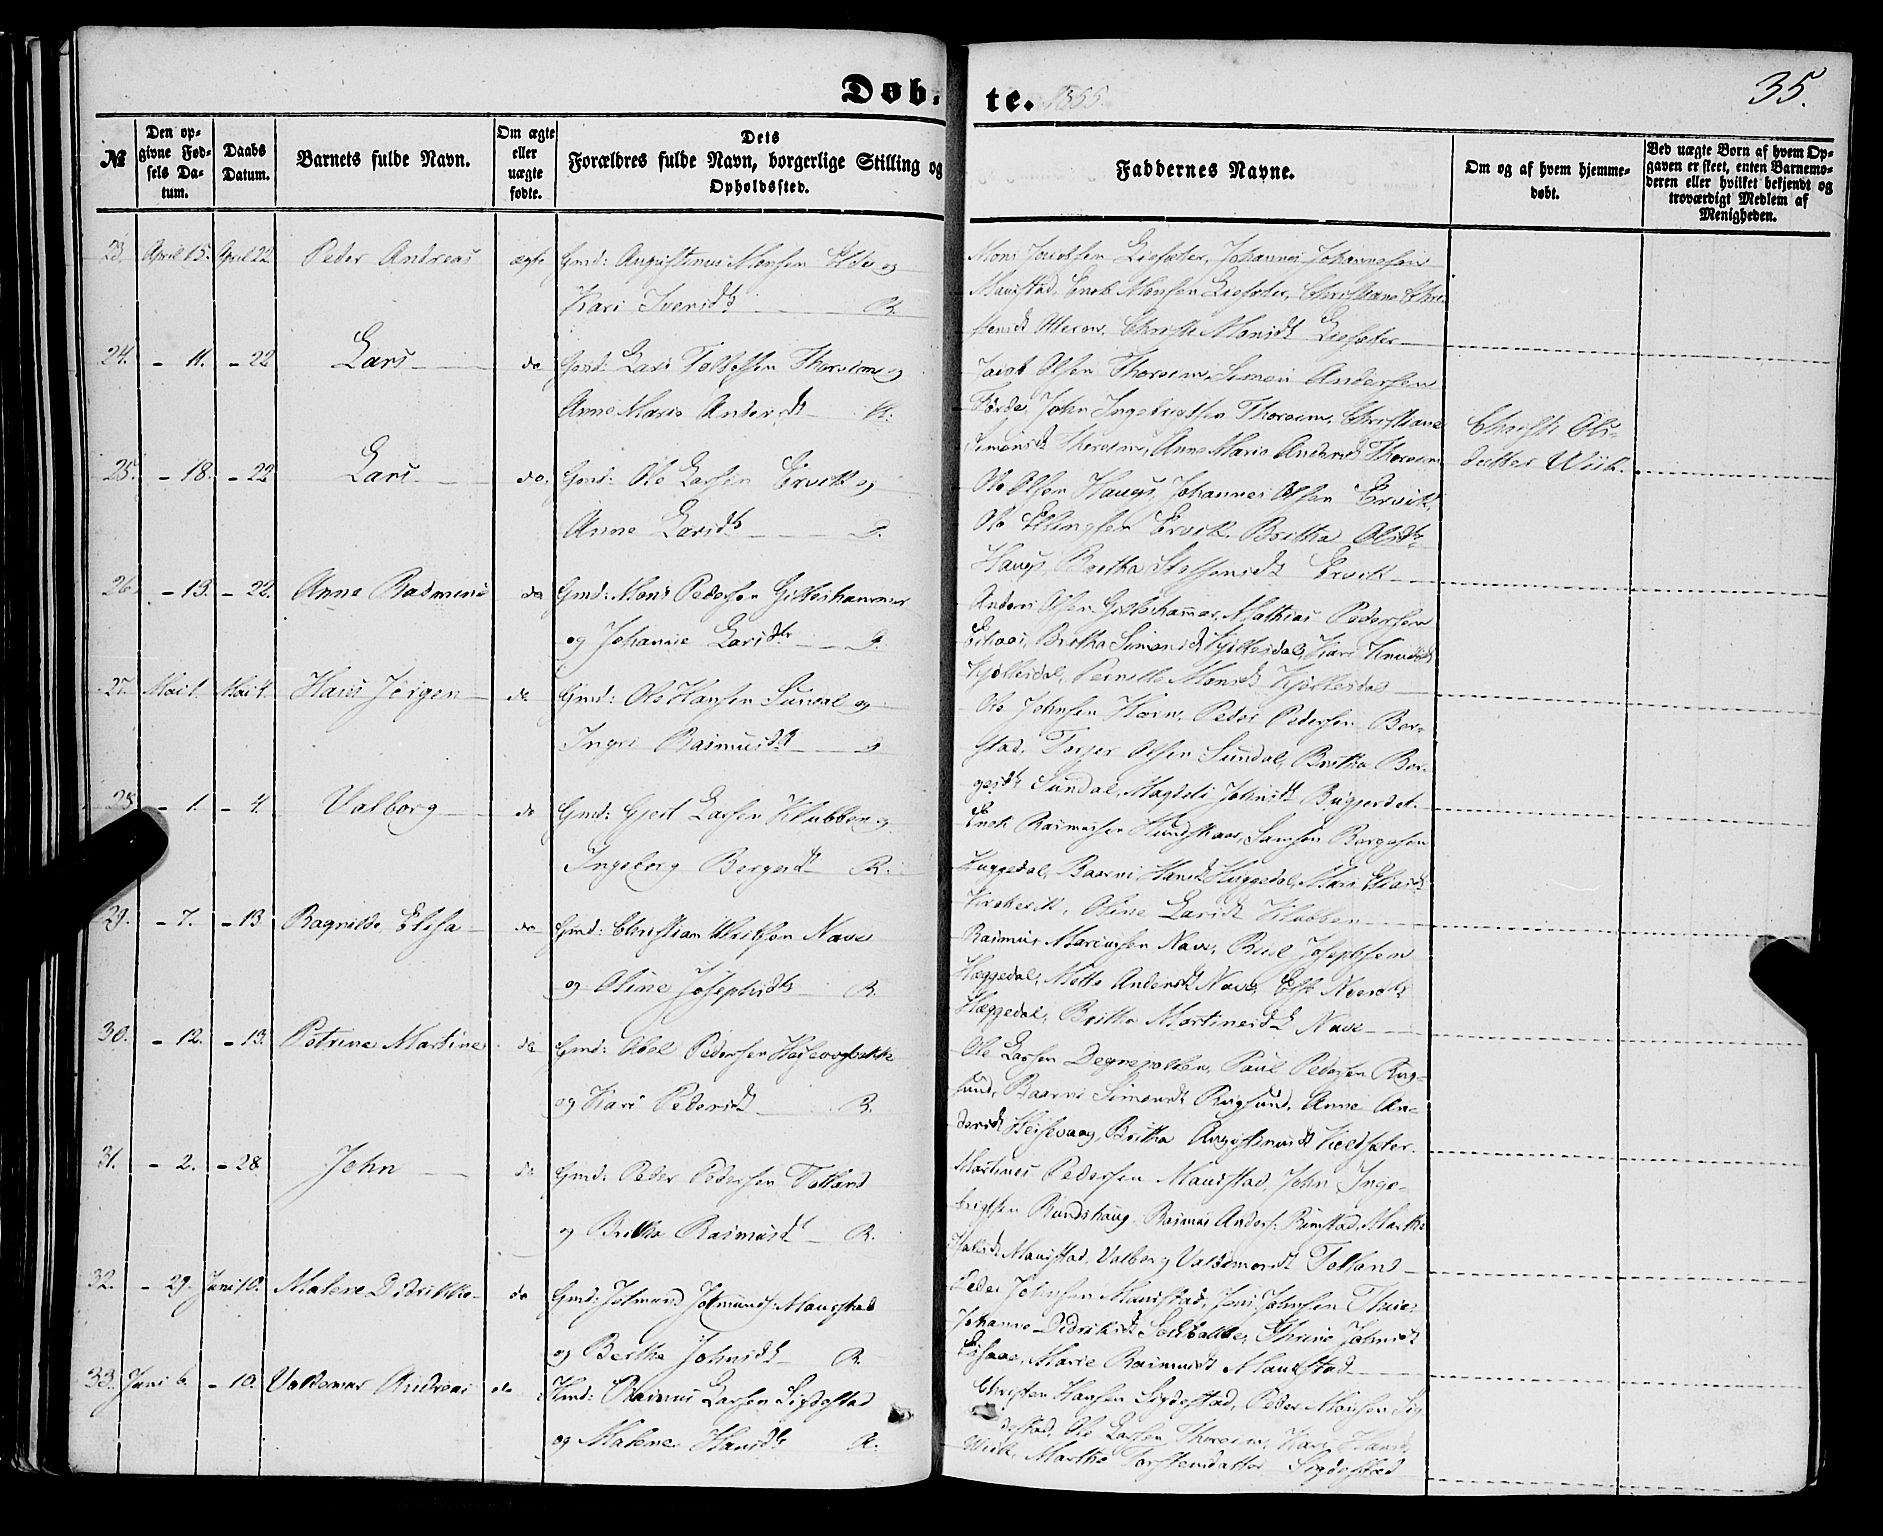 Døb-
te. 1855.
35.
№
Den op-
givne Fød-
sels Da-
tum.
Daabs
Datum.
Barnets fulde Navn.
Om ægte
eller
uægte
fødte.
Dets
Forældres fulde Navn, borgerlige Stilling og
Opholdssted.
Faddernes Navne.
Om og af hvem hjemme-
døbt.
Ved uægte Børn af hvem Op-
gaven er skeet, enten Barnemo-
deren eller hvilket bekjendt og
troværdigt Medlem af
Menigheden.
23. April 15. April 22 Peder Andreas ægte Gmd: Augustinus Monsen Elde og
Kari Iversdtr B.
Mons Jacobsen Liesæter, Johannes Johannesen
Maurstad, Enok Monsen Liesæter, Christiane
Otteren, Christi Monsdt Liesæter
24. - 11. - 22 Lars do Gmd: Lars Tollefsen Thoreim og
Anne Maria Andersdt
Jacob Olsen Thoreim, Simon Andersen
Førde, John Ingebrigtsen Thoreim, Christiane
Simonsdt Thoreim, Anne Maria Andersdt Thoreim
Christi Ols-
datter Wiik.
25. - 18. - 22 Lars do. Gmd: Ole Larsen Ervik og
Anne Larsdtr D.
Ole Olsen Hauge, Johannes Olsen Ervik,
Ole Ellingsen Ervik, Brithe Olsdtr
Hauge, Brethe Steffensdt Ervik
26. - 13. - 22. Anne Rasmine do Gmd: Mons Pedersen Gilleshammer
og Johanne Larsdtr D.
Anders Olsen Gilleshammer, Mathias Pedersen
Brithe Simonsdt Kjøllesdal, Kari Knudsdt
Kjøllesdal, Pernille Monsdt Kjøllesdal
27. Mai 1. Mai 4. Hans Jørgen do Gmd: Ole Hansen Sundal og
Ingri Rasmusdt D
Ole Johnsen Horn, Peder Pedersen Bor-
stad, Torger Olsen Sundal, Brithe Bør-
gesdt Sundal, Magdeli Johnsdt
28 - 1. - 4. Valborg do Gmd: Gjert Larsen Klubben og
Ingeborg Børgesdt B.
Enok Rasmusen Hundskaar, Samson Børgesen
Hæggedal, Baarni Hansdt Hæggedal, Mari
Oline Larsdt Klubben
29. - 7. - 13 Ragnilde Elisa do Gmd: Christian Ulriksen Nave
og Oline Josephsdtr B.
Rasmus Martinsen Nave, Josephsen
Hæggedal, Mette Andersdt Nave,
Hæggedal, Brithe Martinesdt Nave
30. - 12. - 13. Petrine Martine do Gmd: Abel Pedersen
og Kari Pedersdt B.
Ole Larsen Degnepolden, Paul Pedersen Rug-
sund, Baarni Simonsdt Rugsund, Anne An-
dersdt Heisevaag, Brithe Augustinusdt
31. - 2. - 28 John do Gmd: Peder Pedersen Totland
og Brithe Rasmusdt B.
Martinus Pedersen Maurstad, John Inge-
brigtsen Rundshaug, Rasmus Anders: Rimstad, Marthe
Maurstad, Valborg Valdemarsdt Totland
32. - 29. Juni 10. Malene Didrikke do Gmd: Jetmund Jetmunds: Maurstad
og Berthe Johnsdt B.
Peder Johnsen Maurstad, Jens Johnsen
Johanne Didriksdt Johnsdt
Marie Rasmusdt Maurstad
33. Juni 6. - 10. Valdemar Andreas do Hmd: Rasmus Larsen Sigdestad
og Malene Hansdtr
Christen Hansen Sigdestad, Peder Monsen Sig-
destad, Ole Larsen Thoreim, Kari Hansdt
Wiik, Marthe Torstensdatter Sigdestad